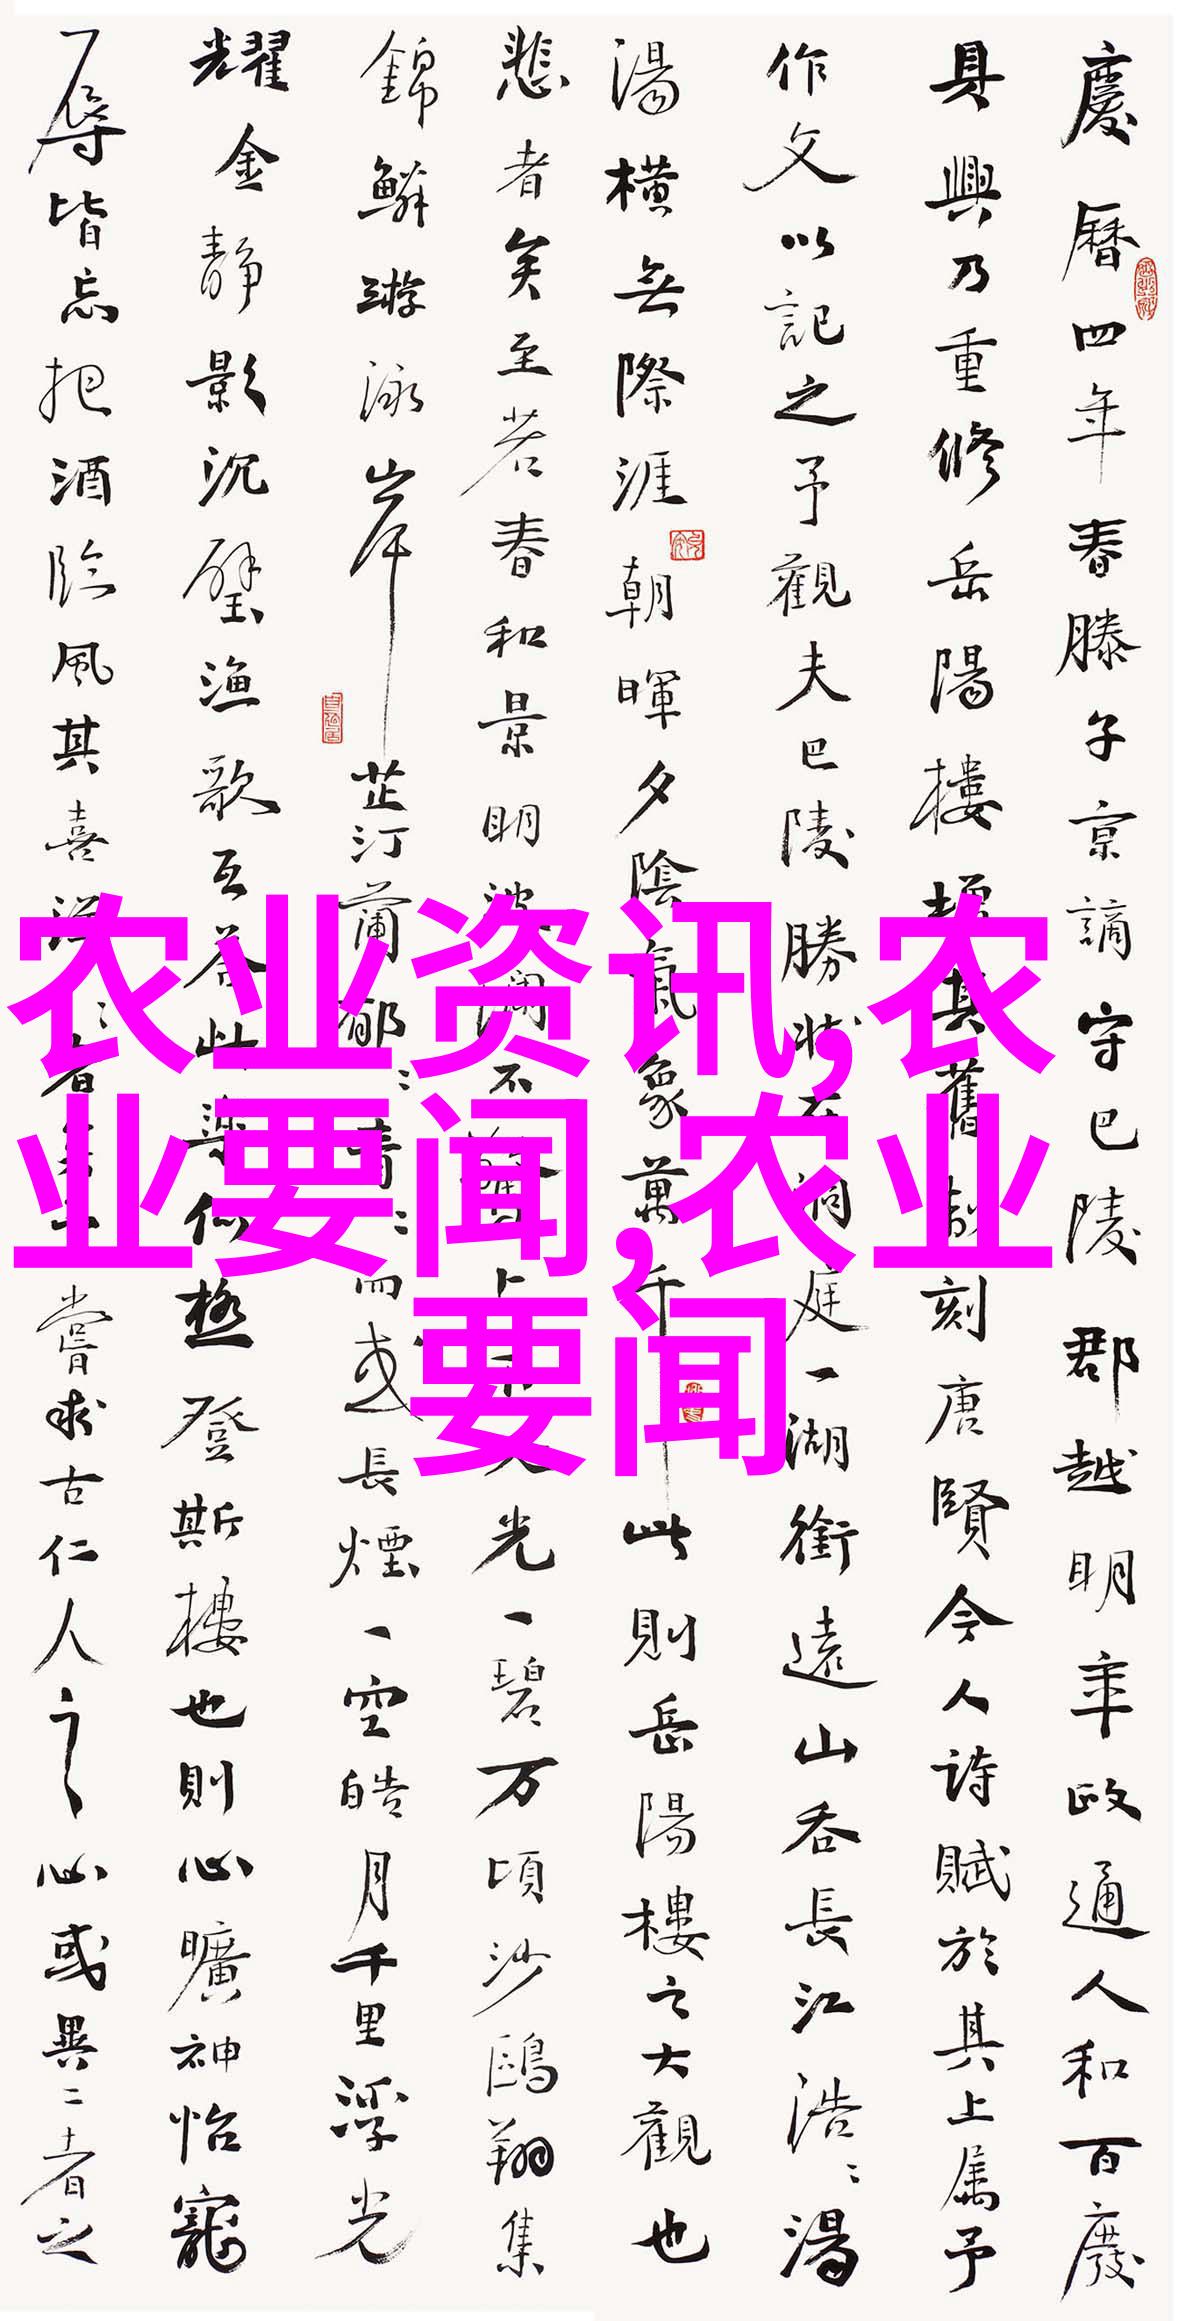 慶曆四年春滕子京謫守巴陵郡越明年政通人和百廢
具興乃重修岳陽樓增其舊制刻唐賢今人詩賦於其上属予
作文以記之予觀夫巴陵勝狀在洞庭一湖銜遠山吞長江浩〻湯
湯橫無際涯朝暉夕陰氣象萬千此則岳陽樓之大觀也
悲者矣至若春和景明波瀾不驚上下天光一碧万頃沙鷗翔集
錦鱗游泳岸芷汀蘭郁〻青〻而或長煙一空皓月千里浮光
耀金静影沉璧漁歌互答此樂何極登斯樓也則心曠神怡寵
辱皆忘把酒臨風其喜洋〻者矣嘗求古仁人之心或異二者之
农业资讯,农
业要闻,农业
要闻